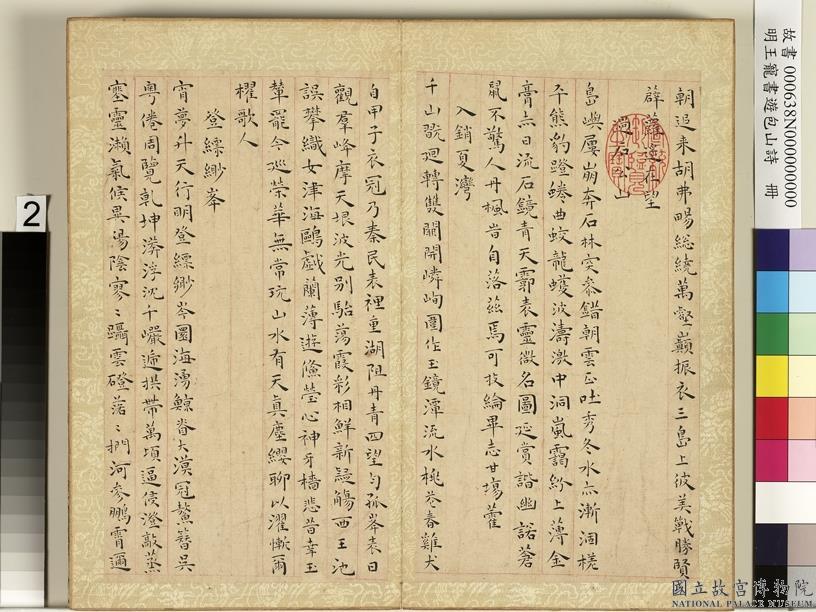 朝追來胡弗暘総繞萬壑巔振衣三島上彼美戰勝賢
薜蘿遙在望
過石公山
島嶼屢崩奔石林突參錯朝雲正吐秀冬水亦漸涸槎
牙熊豹蹬蜷曲蛟龍蠖波濤激中洞嵐靄紛上薄金
膏亦日流石鏡青天霩表靈徵名圖延賞諧幽諾蒼
鼠不驚人丹楓皆自落茲焉可投綸畢志甘塲藿
入銷夏灣
千山既迴轉雙關開嶙峋圍作玉鏡潭流水桃花春雞犬
自甲子衣冠乃秦民表裡重湖阻丹青四望勻孤峯表日
觀羣峰摩天垠波光別駘蕩霞彩相鮮新疑觴西王池
誤攀織女津海鷗戲蘭薄遊儵瑩心神牙檣悲昔幸玉
輦罷今巡榮華無常玩山水有天真塵纓聊以濯慚爾
櫂歌人
登縹緲峯
宵夢升天行明登縹緲岑圜海湧鯨脊大漠冠鰲簪吳
粵倦周覽乾坤漭浮沉千巘遞拱帶萬頃逼侵澄歊蒸
壅靈瀨氣候異陽陰寥〻躡雲磴蕩〻捫河參鵬霄邇
2
故書 000638N000000000
明王寵書遊包山詩 冊
國立故宮博物院
NATIONAL PALACE MUSEUM